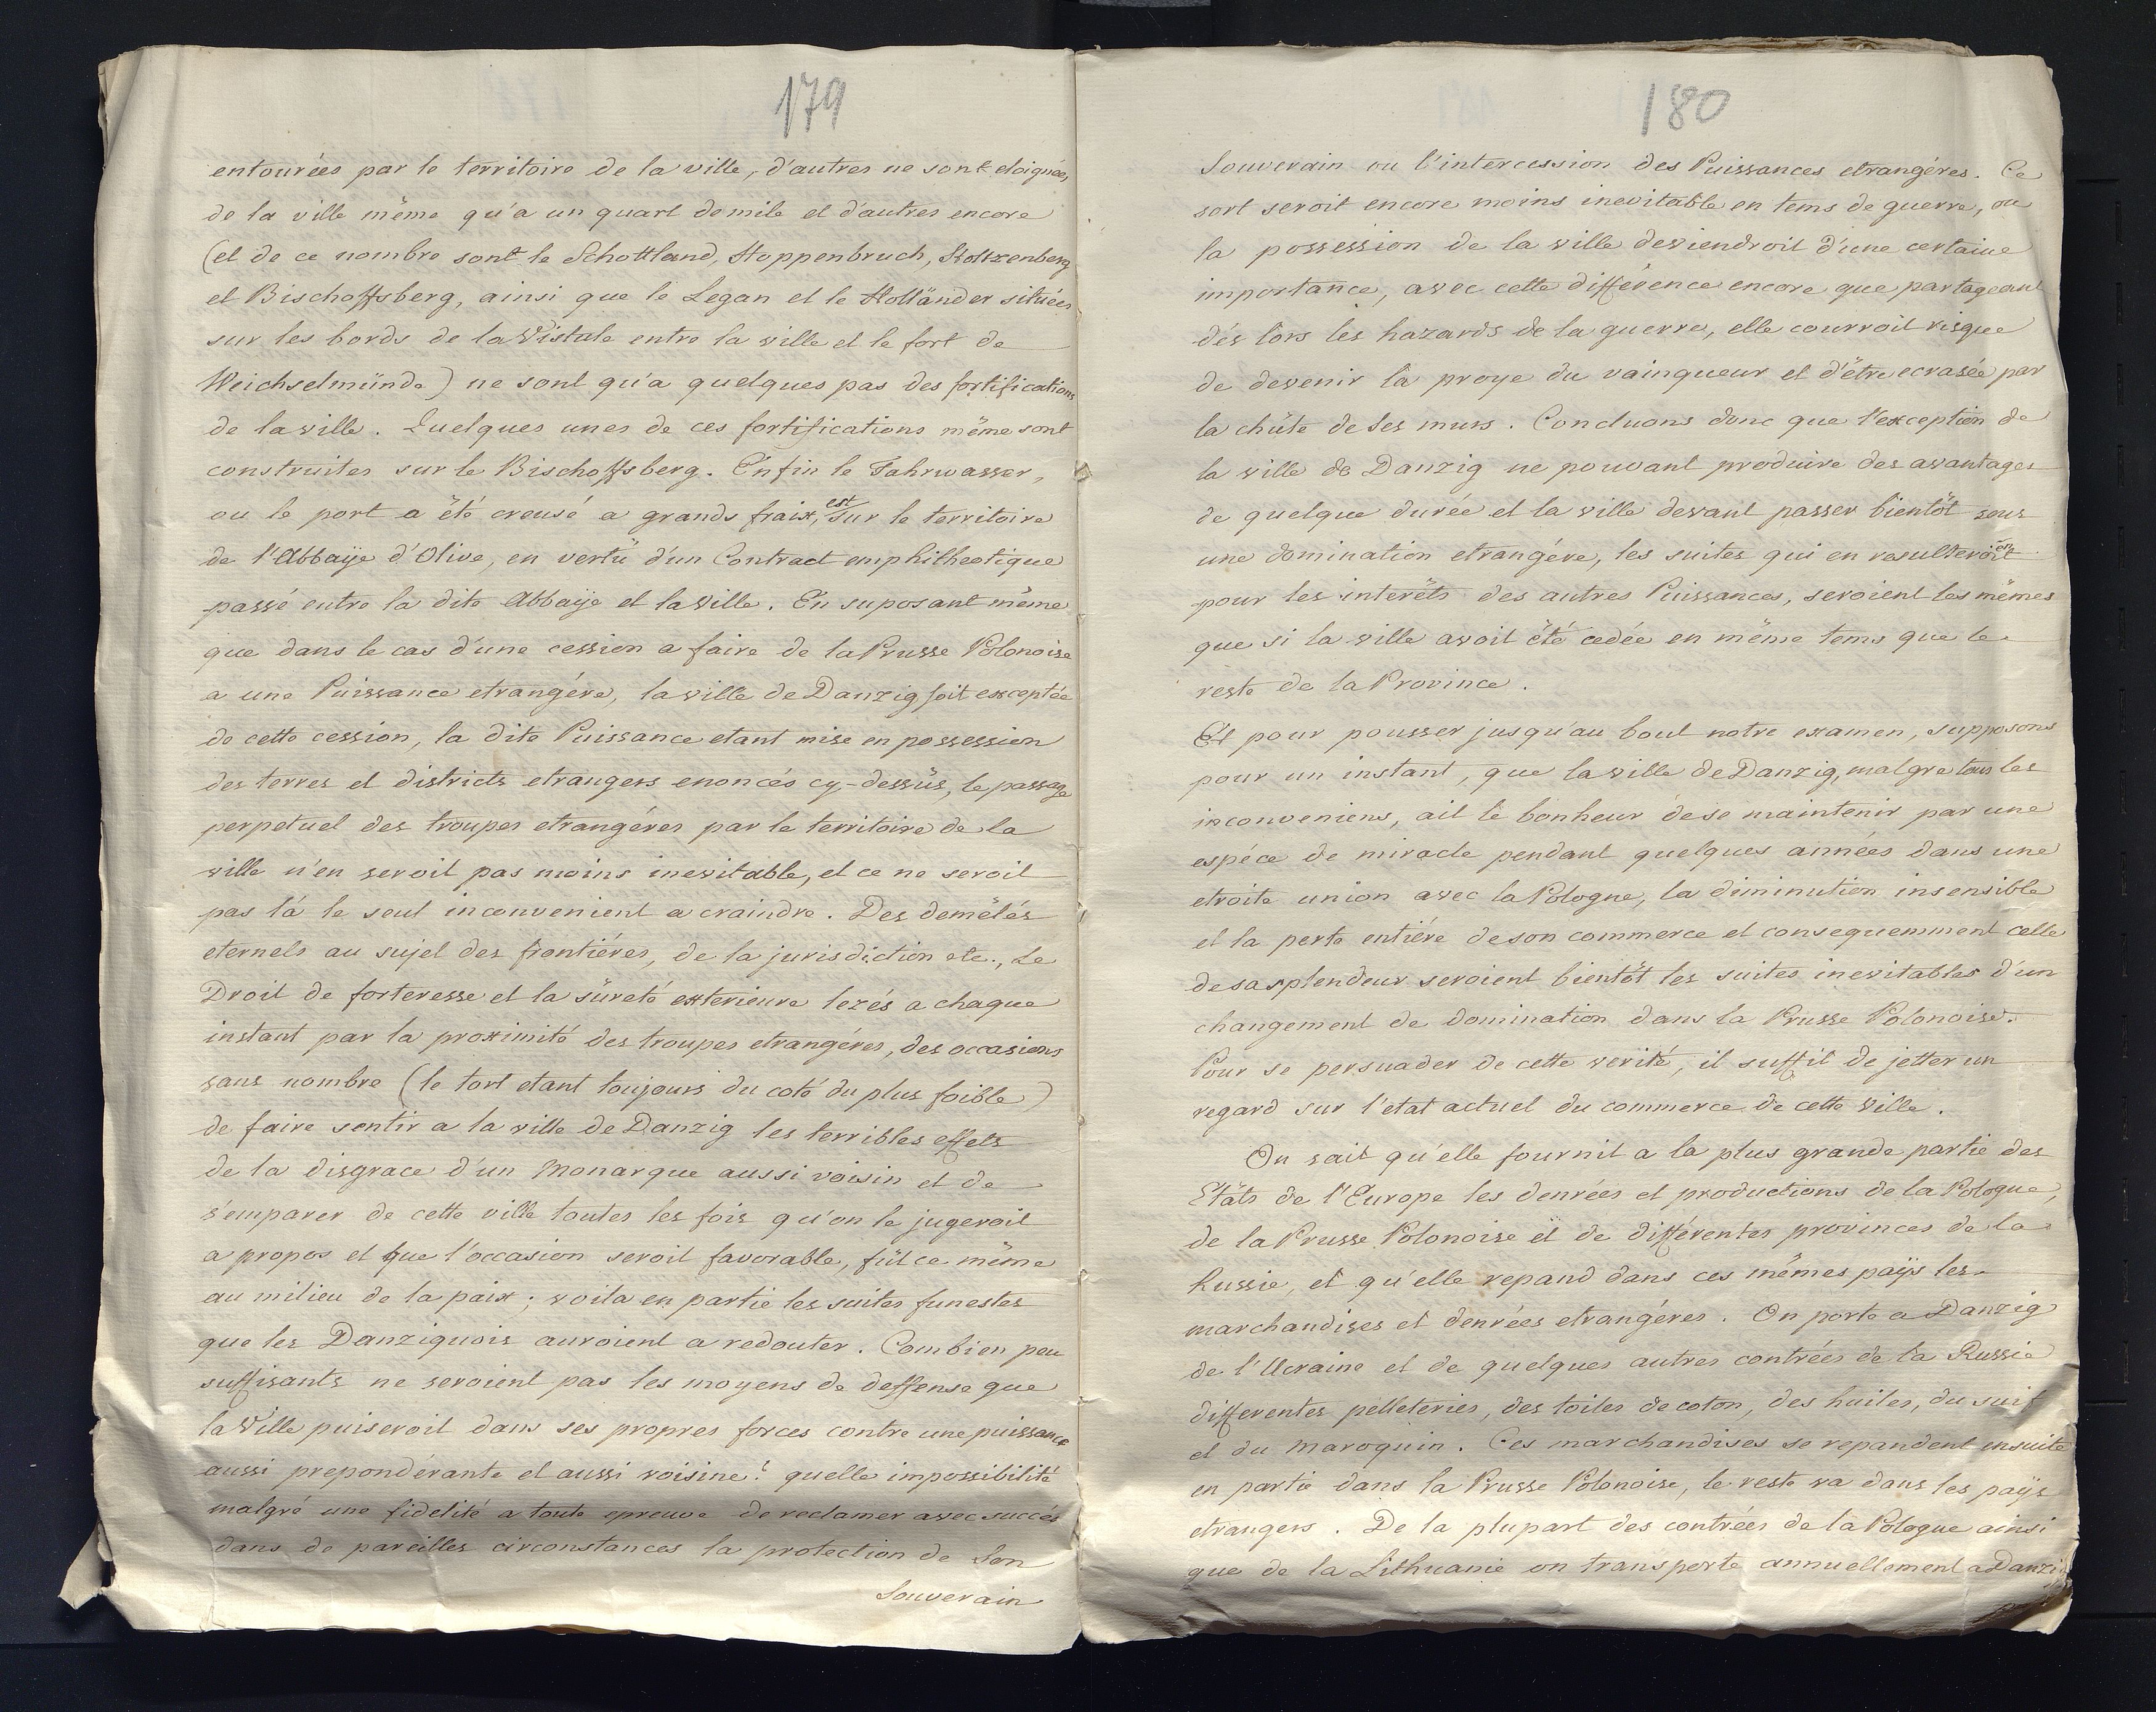 179
entourées par le territoire de la ville, d'autres ne sont eloignées
de la ville même qu'a un quart de mile et d'autres encore
(et de ce nombre sont le Schottland, Hoppenbruch, Stoltzenberg
et Bischoffsberg, ainsi que le Legan et le Holländer situées
sur les bords de la Vistule entre la ville et le fort de
Weichselmünde) ne sont qu'a quelques pas des fortifications
de la ville. Quelques unes de ces fortifications même sont
construites sur le Bischoffsberg. Enfin le Fahrwasser,
ou le port a été creusé a grands fraix, est sur le territoire
de l'Abbaÿe d'Olive, en vertü d'un Contract emphitheotique
passé entre la dite Abbaÿe et la Ville. En suposant même
que dans le cas d'une cession a faire de la Prusse Polonoise
a une Puissance etrangére, la ville de Danzig soit exceptée
de cette cession, la dite Puissance etant mise en possession
des terres et districts etrangers enoncés cy-dessüs, le passage
perpetuel des troupes etrangéres par le territoire de la
ville n'en seroit pas moins inevitable, et ce ne seroit
pas là le seul inconvenient a craindre. Des demêlés
eternels au sujet des frontiéres, de la jurisdiction etc., Le
Droit de forteresse et la süreté exterieure lezés a chaque
instant par la proximité des troupes etrangéres, des occasions
sans nombre (le tort etant toujours du coté du plus foible)
de faire sentir a la ville de Danzig les terribles effets
de la disgrace d'un Monarque aussi voisin et de
s'emparer de cette ville toutes les fois qu'on le jugeroit
a propos et que l'occasion seroit favorable, fût ce même
au milieu de la paix; voila en partie les suites funestes
que les Danziquois auroient a redouter. Combien peu
suffisants ne seroient pas les moyens de deffense que
la Ville puiseroit dans ses propres forces contre une puissance
aussi prepondérante et aussi voisine! quelle impossibilité
malgré une fidelité a toute epreuve de reclamer avec succés
dans de pareilles circonstances la protection de Son
Souverain
180
Souverain ou l'intercession des Puissances etrangéres. Ce
sort seroit encore moins inevitable en tems de guerre, ou
la possession de la ville deviendroit d'une certaine
importance, avec cette différence encore que partageant
dés lors les hazards de la guerre, elle courroit risque
de devenir la proye du vainqueur et d'être ecrasée par
la chüte de ses murs. Concluons donc que l'exception de
la ville de Danzig ne pouvant produire des avantages
de quelque durée et la ville devant passer bientôt sous
une domination etrangére, les suites qui en resulteroient
pour les interêts des autres Puissances, seroient les mêmes
que si la ville avoit été cedée en même tems que le
reste de la Province.
Et pour pousser jusqu'au bout notre examen, supposons
pour un instant, que la ville de Danzig, malgre tous les
inconveniens, ait le bonheur de se maintenir par une
espéce de miracle pendant quelques années dans une
etroite union avec la Pologne, la diminution insensible
et la perte entiére de son commerce et consequemment celle
de sa splendeur seroient bientôt les suites inevitables d'un
changement de domination dans la Prusse Polonoise.
Pour se persuader de cette verité, il suffit de jetter un
regard sur l'etat actuel du commerce de cette Ville.
On sait qu'elle fournit a la plus grande partie des
Etäts de l'Europe les denrées et productions de la Pologne,
de la Prusse Polonoise et de différentes provinces de la
Russie, et qu'elle repand dans ces mêmes païs les
marchandises et denrées etrangéres. On porte a Danzig
de l'Ucraine et de quelques autres contrées de la Russie
differentes pelleteries, des toiles de coton, des huiles, du suif
et du Maroquin. Ces marchandises se repandent ensuite
en partie dans la Prusse Polonoise, le reste va dans les païs
etrangers. De la plupart des contrées de la Pologne ainsi
que de la Lithuanie on transporte annuellement a Danzig